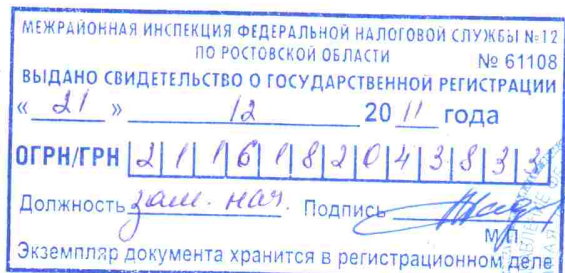 МЕЖРАЙОННАЯ ИНСПЕКЦИЯ ФЕДЕРАЛЬНОЙ НАЛОГОВОЙ СЛУЖБЫ №12
ПО РОСТОВСКОЙ ОБЛАСТИ № 61108
ВЫДАНО СВИДЕТЕЛЬСТВО О ГОСУДАРСТВЕННОЙ РЕГИСТРАЦИИ
« 21 » 12 20 11 года
ОГРН/ГРН 2 1 1 6 1 8 2 0 4 3 8 3 3
Должность зам. нач. Подпись
М.П.
Экземпляр документа хранится в регистрационном деле